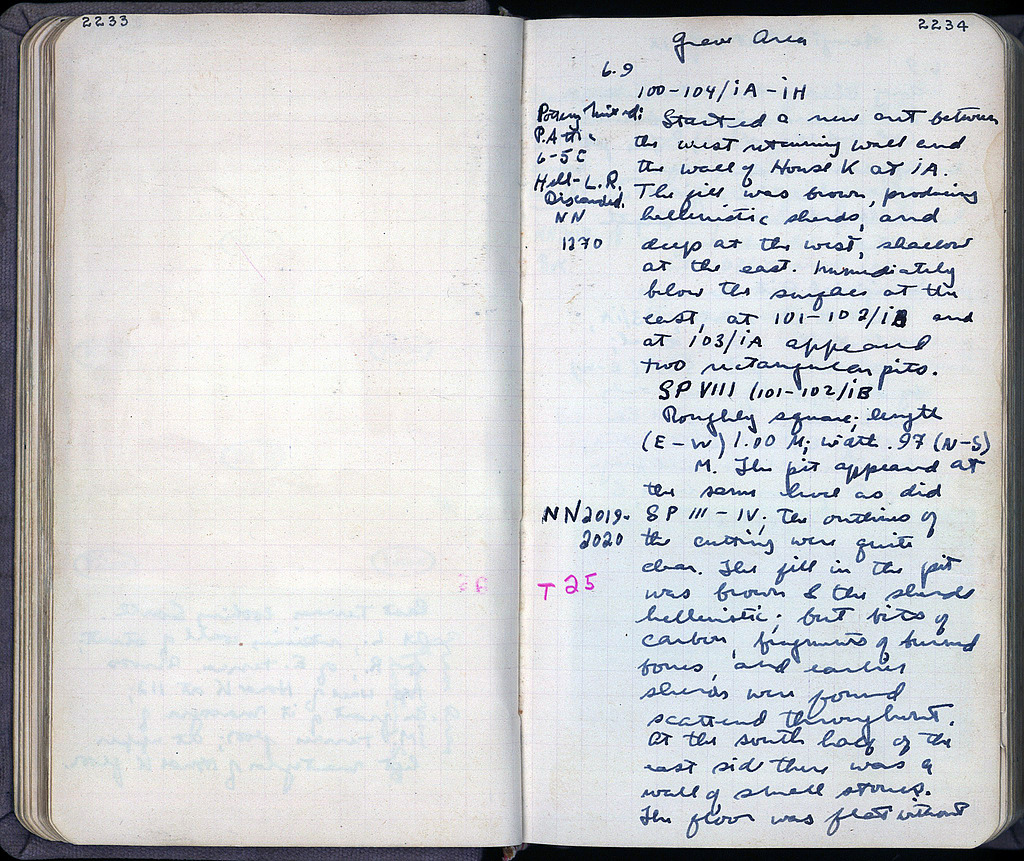 2233
2234
Grave Area
6.9
100-104/iA-iH
Pottery mixed:
P.A. to
6-5C
Hell-L.R.
Discarded.
NN
1270
Started a new cut between
the west retaining wall and
the wall of House K at iA.
The fill was brown, producing
hellenistic sherds, and
deep at the west, shallow
at the east. Immediately
below the surface at the
east, at 101-102/iB and
at 103/iA appeared
two rectangular pits.
SP VIII (101-102/iB
Roughly square; length
(E-W) 1.00 M; width .97 (N-S)
M. The pit appeared at
the same level as did
NN2019-
2020
SP III-IV; the outlines of
the cutting were quite
clear. The fill in the pit
T 25
was brown & the sherds
hellenistic; but bits of
carbon, fragments of burned
bones, and earlier
sherds were found
scattered throughout.
At the south half of the
east side there was a
wall of small stones.
The floor was flat without